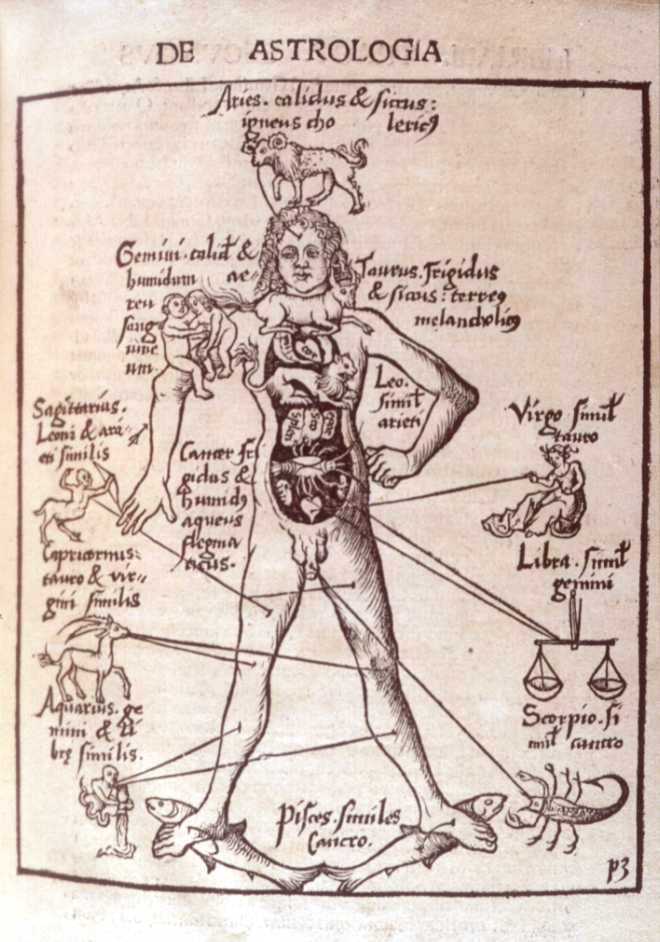 DE ASTROLOGIA
Aries. calidus & siccus:
igneus cho lericꝰ
Gemini. calid &
humidum ae-
reu
sang
uine
um
Taurus. frigidus
& siccus: terreꝰ
melancholicꝰ
Leo.
simil
arieti
Sagittarius.
Leoni & ari-
eti similis
Cancer fri
gidus &
humidꝰ
aqueus
flegma
ticus.
Virgo simil
tauro
Capricornus:
tauro & vir-
gini similis
Libra. simil
gemini
Aquarius. ge
mini & li
brę similis.
Scorpio. si
mil cancro
Pisces. similes
Cancro.
p3